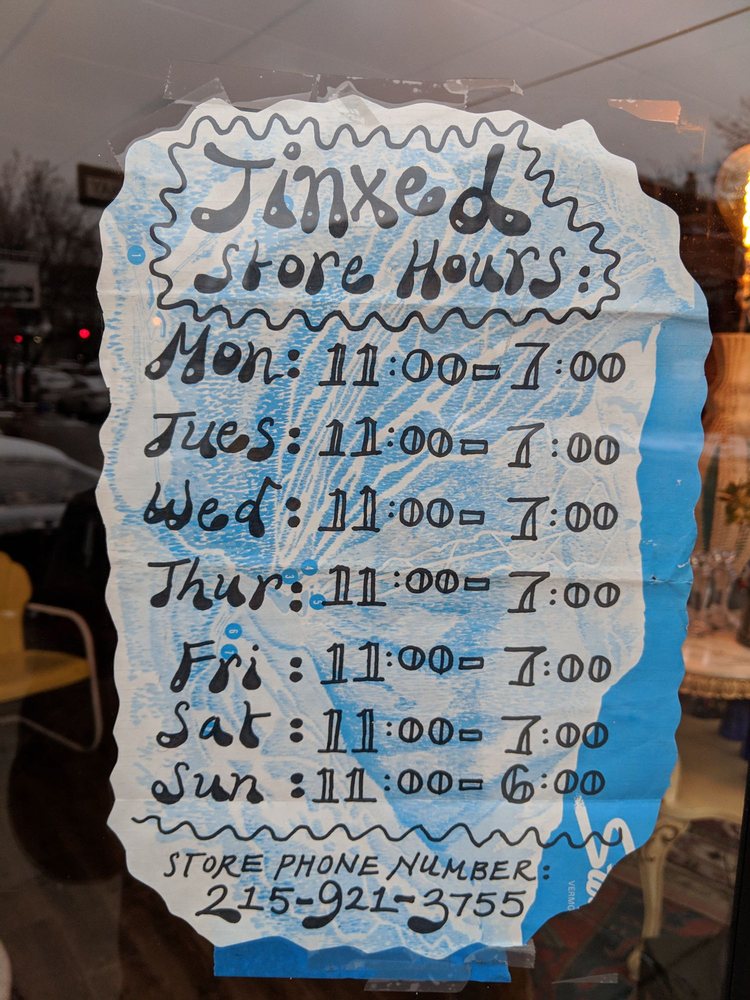 Jinxed
Store Hours:
Mon: 11:00-7:00
Tues: 11:00-7:00
Wed: 11:00-7:00
Thur: 11:00-7:00
Fri: 11:00-7:00
Sat: 11:00-7:00
Sun: 11:00-6:00
STORE PHONE NUMBER:
215-921-3755